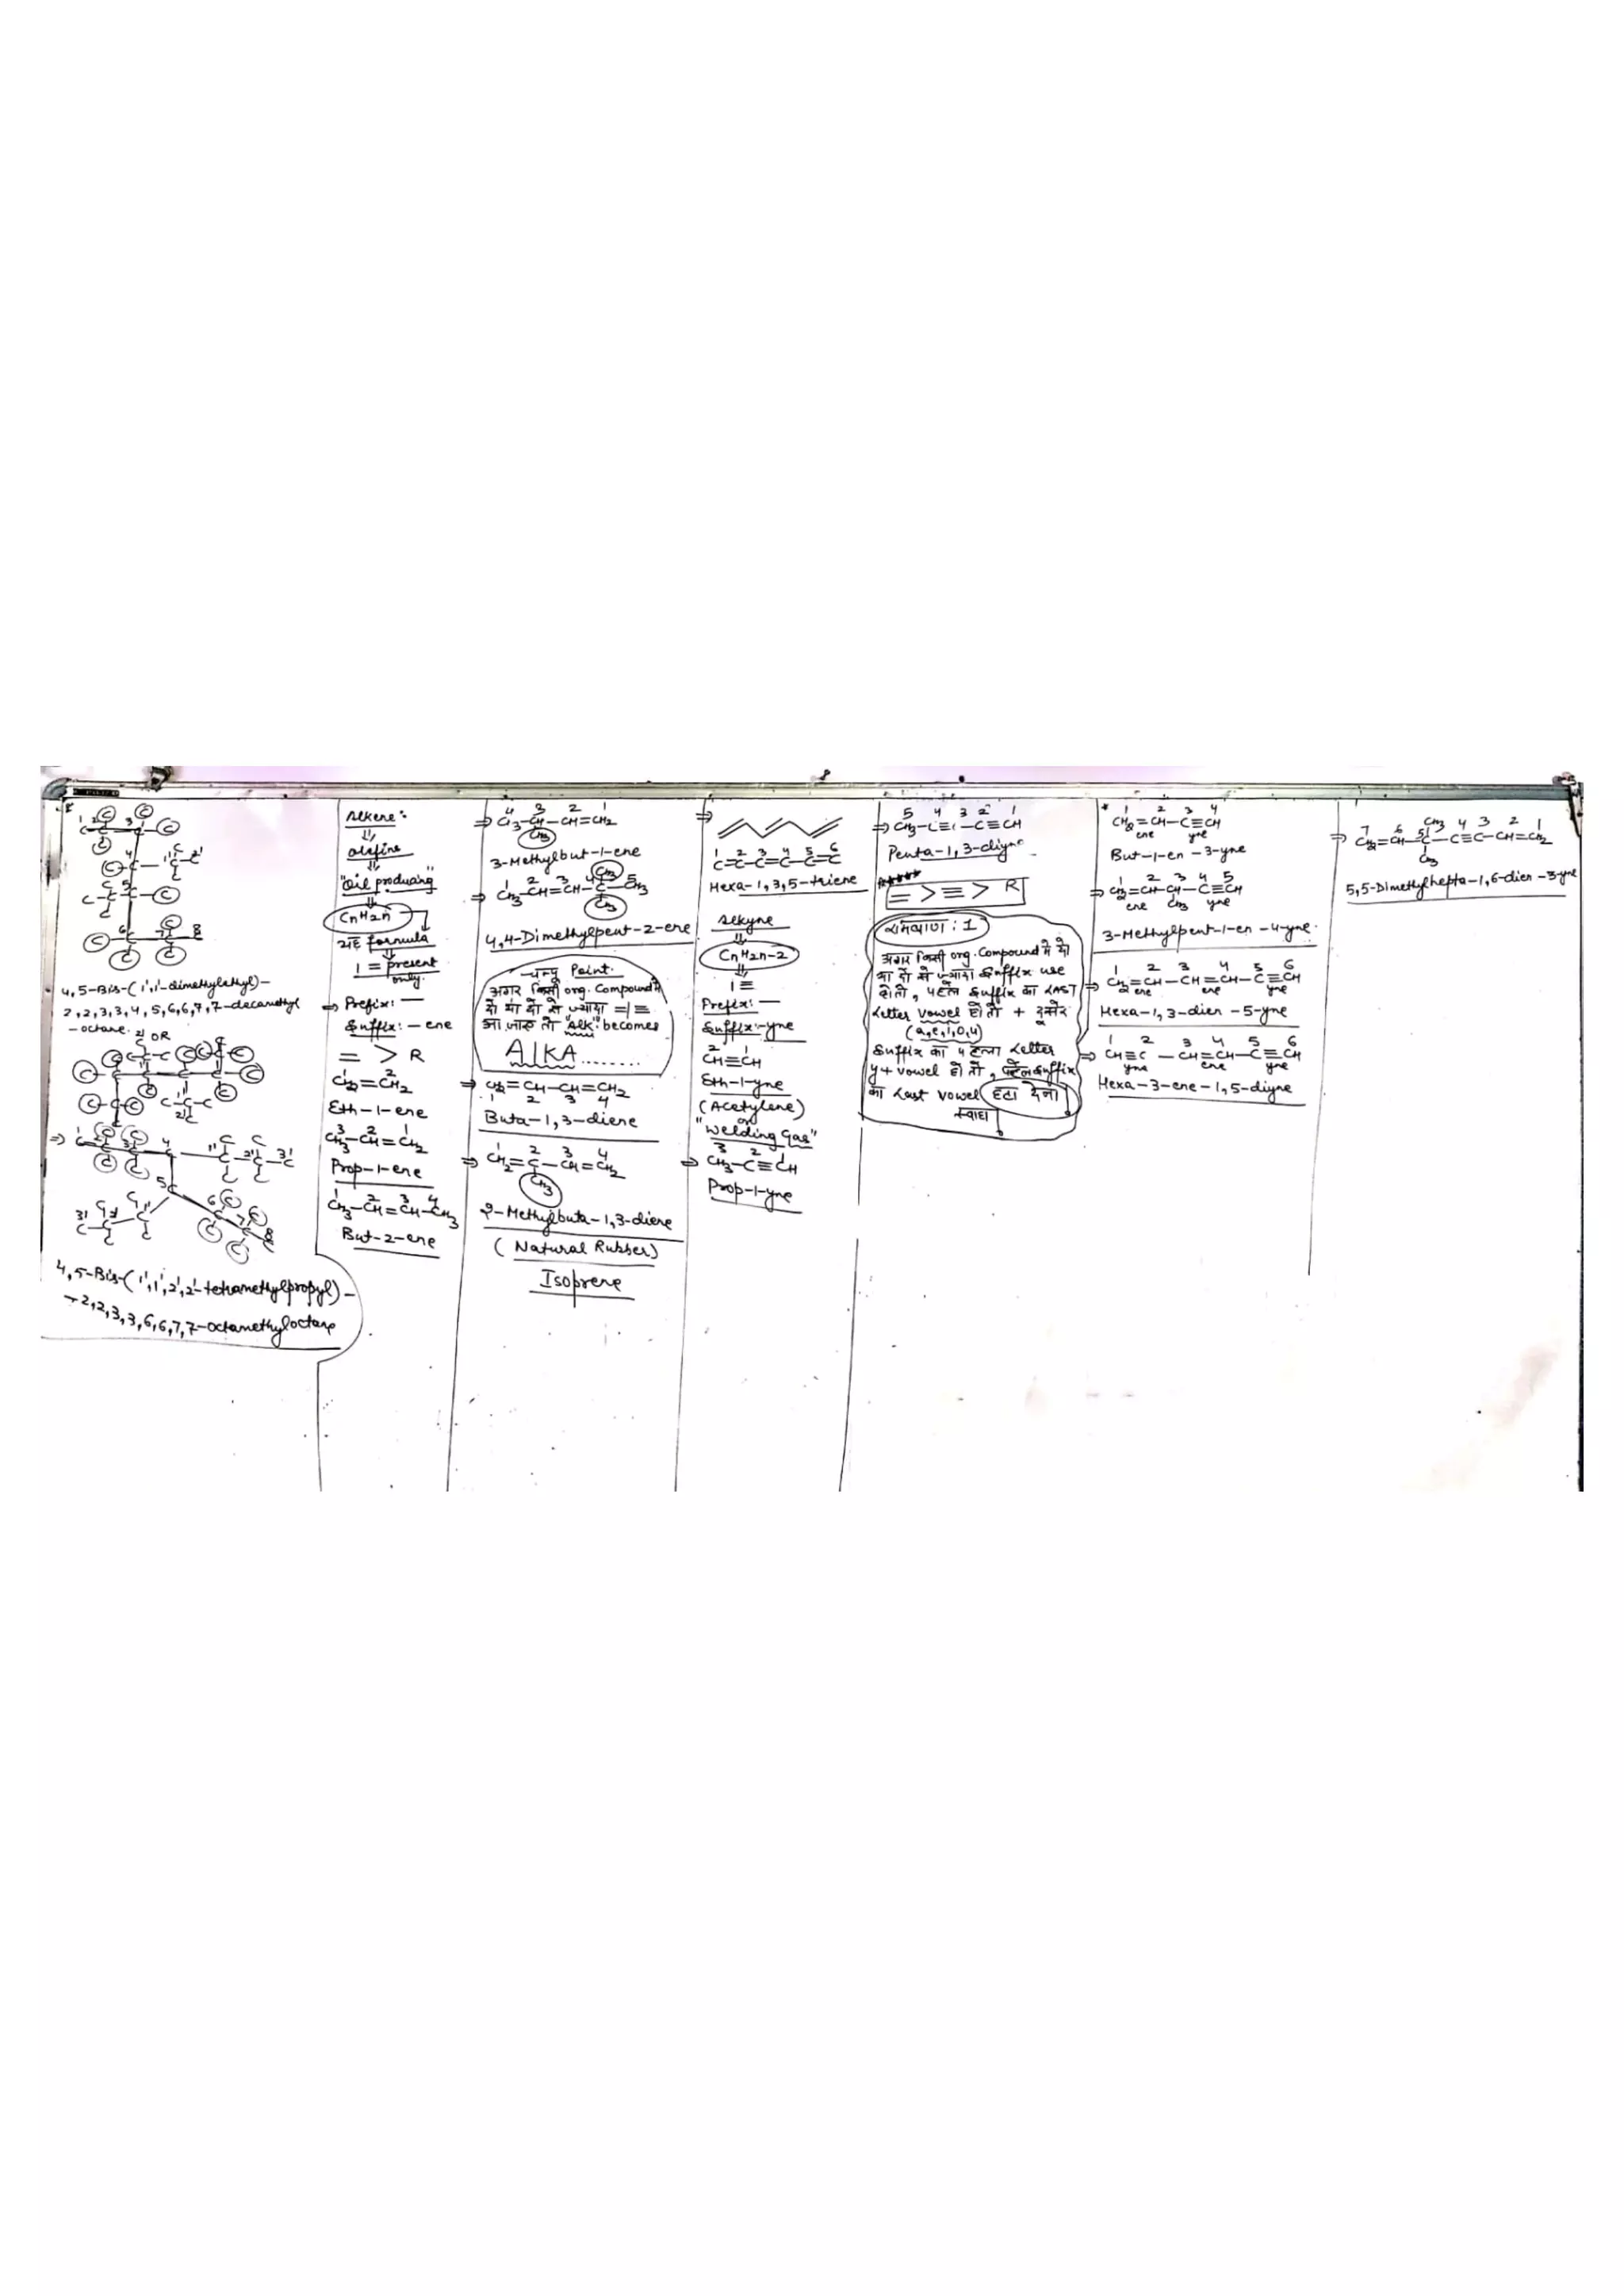 4,5-Bis-(1',1'-dimethylethyl)-
2,2,3,3,4,5,6,6,7,7-decamethyl
-octane.
OR
4,5-Bis-(1',1',2',2'-tetramethylpropyl)-
-2,2,3,3,6,6,7,7-octamethyloctane
Alkene:
⇓
olefine
⇓
"Oil producing"
⇓
CnH2n
यह formula
1 = present
only.
⇒ Prefix: —
Suffix: - ene
= > R
1 2
CH2=CH2
Eth-1-ene
3 2 1
CH3-CH=CH2
Prop-1-ene
1 2 3 4
CH3-CH=CH-CH3
But-2-ene
4 3 2 1
⇒ CH3-CH-CH=CH2
CH3
3-Methylbut-1-ene
CH3
1 2 3 4 5
⇒ CH3-CH=CH-C-CH3
CH3
4,4-Dimethylpent-2-ene
Point.
अगर किसी org. Compound में
दो या दो से ज्यादा =/≡
आ जाए तो "Alk" becomes
AlKA........
⇒ CH2=CH-CH=CH2
1 2 3 4
Buta-1,3-diene
1 2 3 4
⇒ CH2=C-CH=CH2
CH3
2-Methylbuta-1,3-diene
(Natural Rubber)
Isoprene
⇒
1 2 3 4 5 6
C=C-C=C-C=C
Hexa-1,3,5-triene
Alkyne
⇓
CnH2n-2
⇓
1≡
Prefix: —
Suffix:-yne
2 1
CH≡CH
Eth-1-yne
(Acetylene)
or
"Welding Gas"
3 2 1
⇒ CH3-C≡CH
Prop-1-yne
5 4 3 2 1
⇒ CH3-C≡C-C≡CH
Penta-1,3-diyne
= > ≡ > R
रामबाण : 1
अगर किसी org. Compound में दो
या दो से ज्यादा Suffix use
हो तो, पहले Suffix का LAST
Letter vowel हो तो + दूसरे
(a,e,i,o,u)
Suffix का पहला Letter
y+ vowel हो तो, पहले Suffix
का Last vowel हटा देना
स्वाहा
1 2 3 4
CH2=CH-C≡CH
ene yne
But-1-en-3-yne
1 2 3 4 5
⇒ CH2=CH-CH-C≡CH
ene CH3 yne
3-Methylpent-1-en-4-yne.
1 2 3 4 5 6
⇒ CH2=CH-CH=CH-C≡CH
ene ene yne
Hexa-1,3-dien-5-yne
1 2 3 4 5 6
⇒ CH≡C-CH=CH-C≡CH
yne ene yne
Hexa-3-ene-1,5-diyne
CH3
7 6 5 4 3 2 1
⇒ CH2=CH-C-C≡C-CH=CH2
CH3
5,5-Dimethylhepta-1,6-dien-3-yne